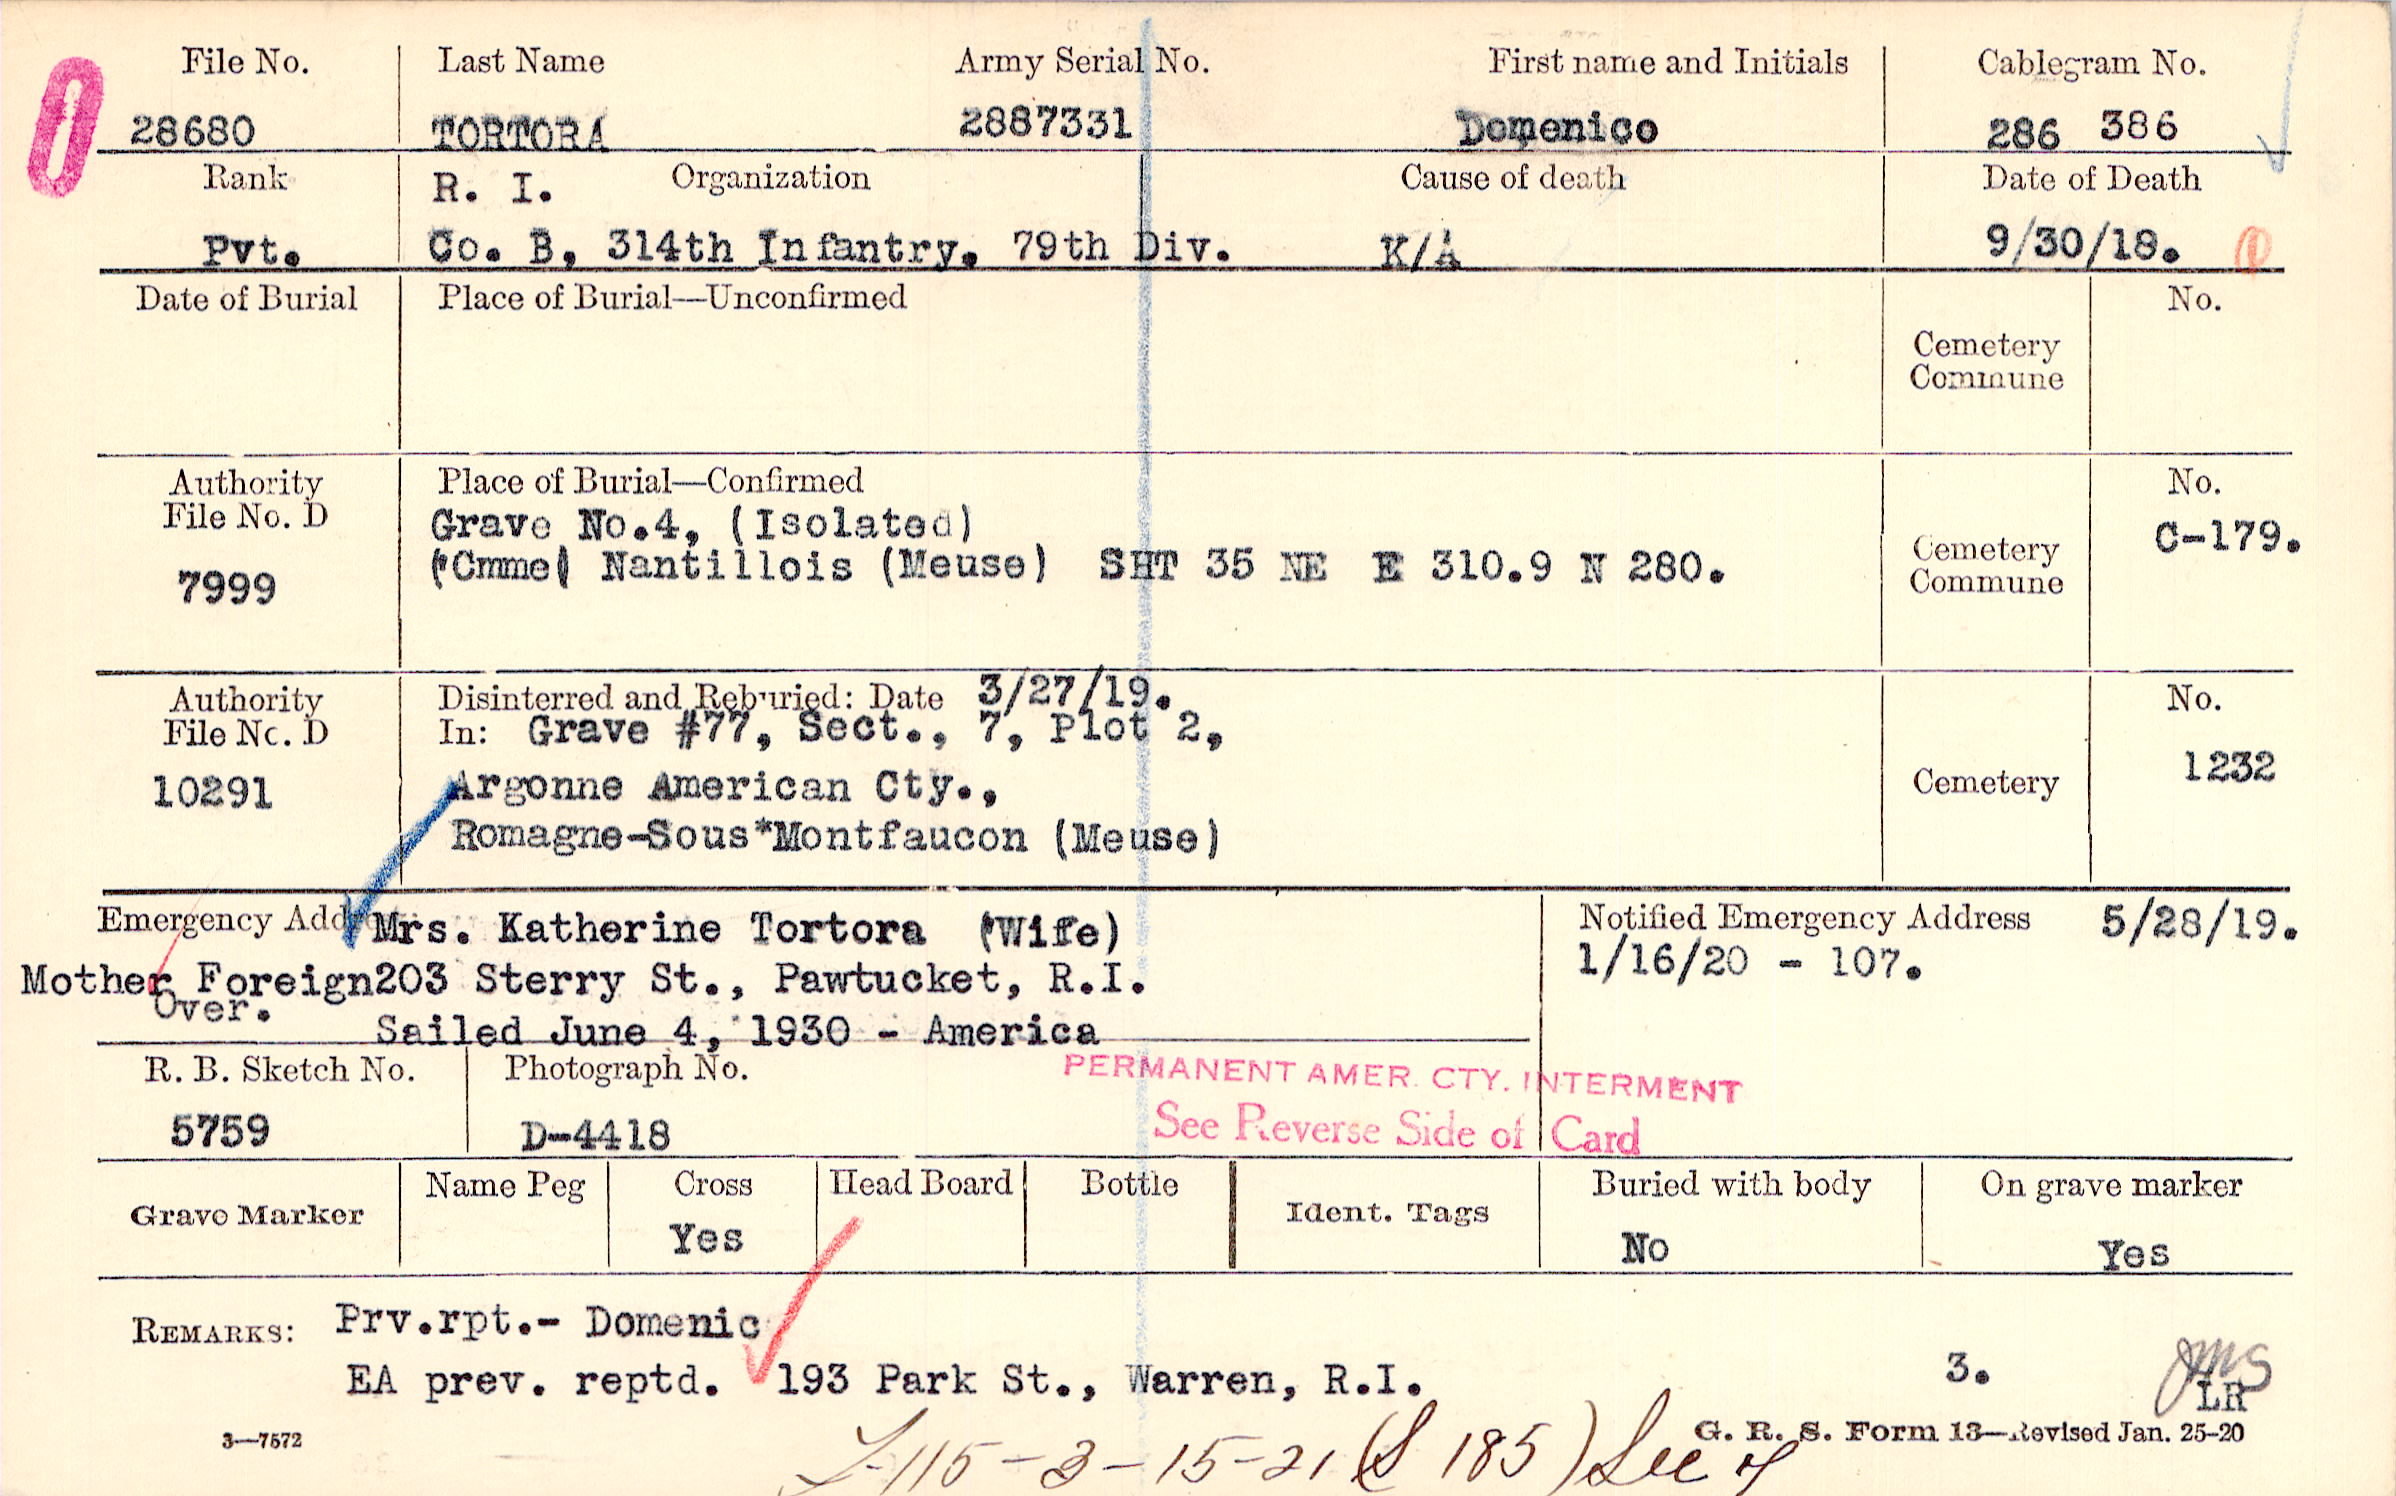 File No. Last Name Army Serial No. First name and Initials Cablegram No.
28680 TORTORA 2887331 Domenico 286 386
Rank R. I. Organization Cause of death Date of Death
Pvt. Co. B, 314th Infantry, 79th Div. K/A 9/30/18.
Date of Burial Place of Burial—Unconfirmed No.
Cemetery
Commune
Authority Place of Burial—Confirmed No.
File No. D Grave No.4, (Isolated) C-179.
(Cmme( Nantillois (Meuse) SHT 35 NE E 310.9 N 280. Cemetery
7999 Commune
Authority Disinterred and Reburied: Date 3/27/19. No.
File No. D In: Grave #77, Sect., 7, Plot 2,
10291 Argonne American Cty., Cemetery 1232
Romagne-Sous*Montfaucon (Meuse)
Emergency Addr Mrs. Katherine Tortora (Wife) Notified Emergency Address 5/28/19.
Mother Foreign203 Sterry St., Pawtucket, R.I. 1/16/20 - 107.
Over.
Sailed June 4, 1930 - America
R. B. Sketch No. Photograph No. PERMANENT AMER. CTY. INTERMENT
5759 D-4418 See Reverse Side of Card
Grave Marker Name Peg Cross Head Board Bottle Ident. Tags Buried with body On grave marker
Yes No Yes
REMARKS: Prv.rpt.- Domenic
EA prev. reptd. 193 Park St., Warren, R.I. 3. JMS
LR
3—7572 G. R. S. Form 13—Revised Jan. 25-20
L-115-3-15-21 (S 185) See